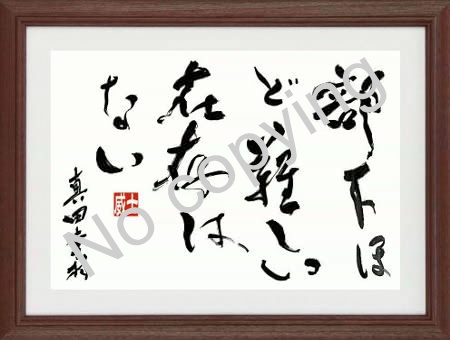 部下ほ
ど難しい
存在は
ない
真田幸村
No copying